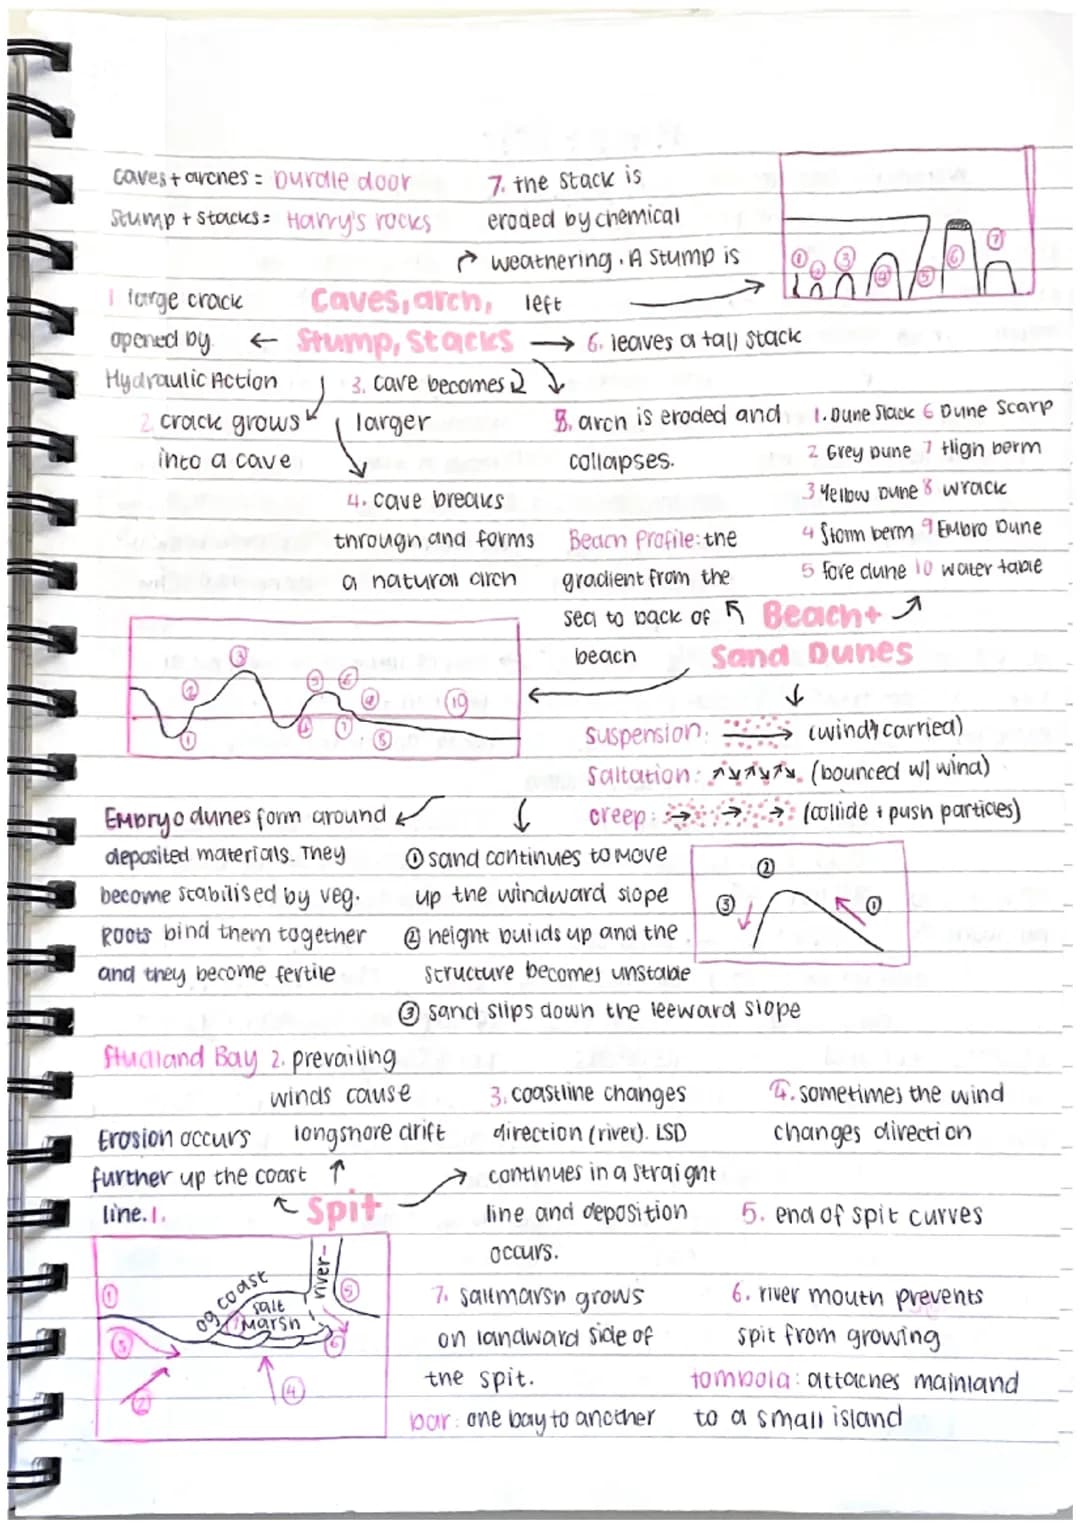 Caves + arches = Durdle door
Stump + Stacks = Harry's rocks
7. the stack is
eroded by chemical
weathering. A stump is
left
① ② ③ ④ ⑤ ⑥ ⑦
Caves, arch,
Stump, Stacks
1 large crack
opened by
Hydraulic Action
2. crack grows
into a cave
3. cave becomes
larger
4. cave breaks
through and forms
a natural arch
5. arch is eroded and
collapses.
6. leaves a tall stack
1. Dune Slack 6 Dune Scarp
2 Grey Dune 7 High berm
3 Yellow Dune 8 wrack
4 Storm berm 9 Embro Dune
5 fore dune 10 water table
Beach Profile: the
gradient from the
sea to back of
beach
Beach +
Sand Dunes
suspension: (wind carried)
Saltation: (bounced w/ wind)
creep: (collide + push particles)
Embryo dunes form around
deposited materials. They
become stabilised by veg.
Roots bind them together
and they become fertile
① sand continues to move
up the windward slope
② height builds up and the
structure becomes unstable
③ sand slips down the leeward slope
②
③ ①
Studland Bay
Erosion occurs
further up the coast
line. 1.
2. prevailing
winds cause
longshore drift
Spit
3. coastline changes
direction (river). LSD
continues in a straight
line and deposition
occurs.
4. sometimes the wind
changes direction
5. end of spit curves
6. river mouth prevents
spit from growing
7. saltmarsh grows
on landward side of
the spit.
tombola: attaches mainland
to a small island
bar: one bay to another
og coast
salt
marsh
river
① ② ③ ④ ⑤ ⑥